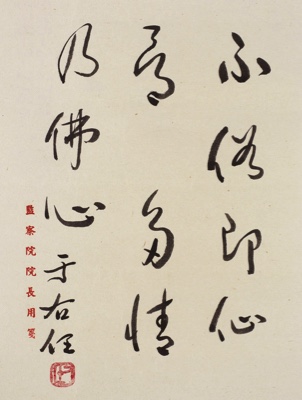 不俗即仙
骨 多情
乃佛心 于右任
監察院院長用箋